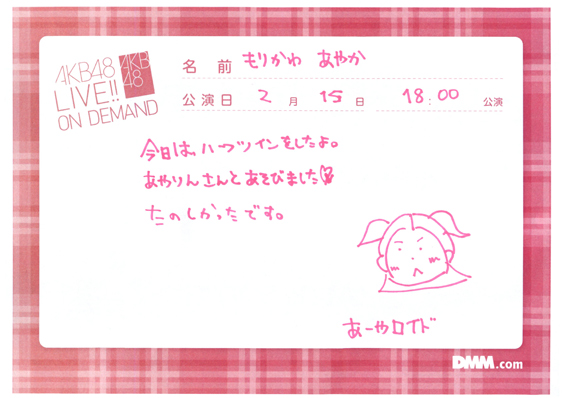 AKB48
LIVE!!
ON DEMAND
AKB
48
名 前 もりかわ あやか
公演日 2 月 15 日 18:00 公演
今日は、ハーフツインをしたよ。
あやりんさんとあそびました
たのしかったです。
あーやロイド
DMM.com